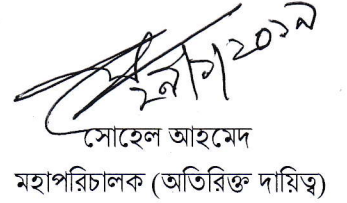 সোহেল আহমেদ
মহাপরিচালক (অতিরিক্ত দায়িত্ব)